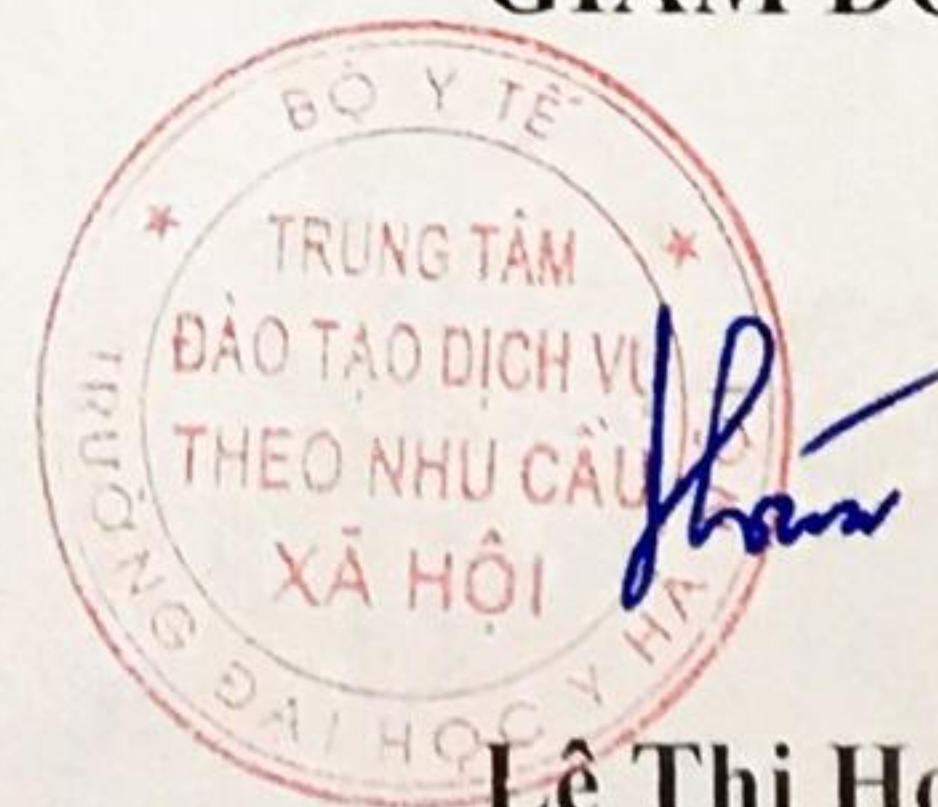 GIÁM ĐỐ
BỘ Y TẾ
TRUNG TÂM
ĐÀO TẠO DỊCH VỤ
THEO NHU CẦU
XÃ HỘI
TRƯỜNG ĐẠI HỌC Y HÀ
Lê Thị Ho